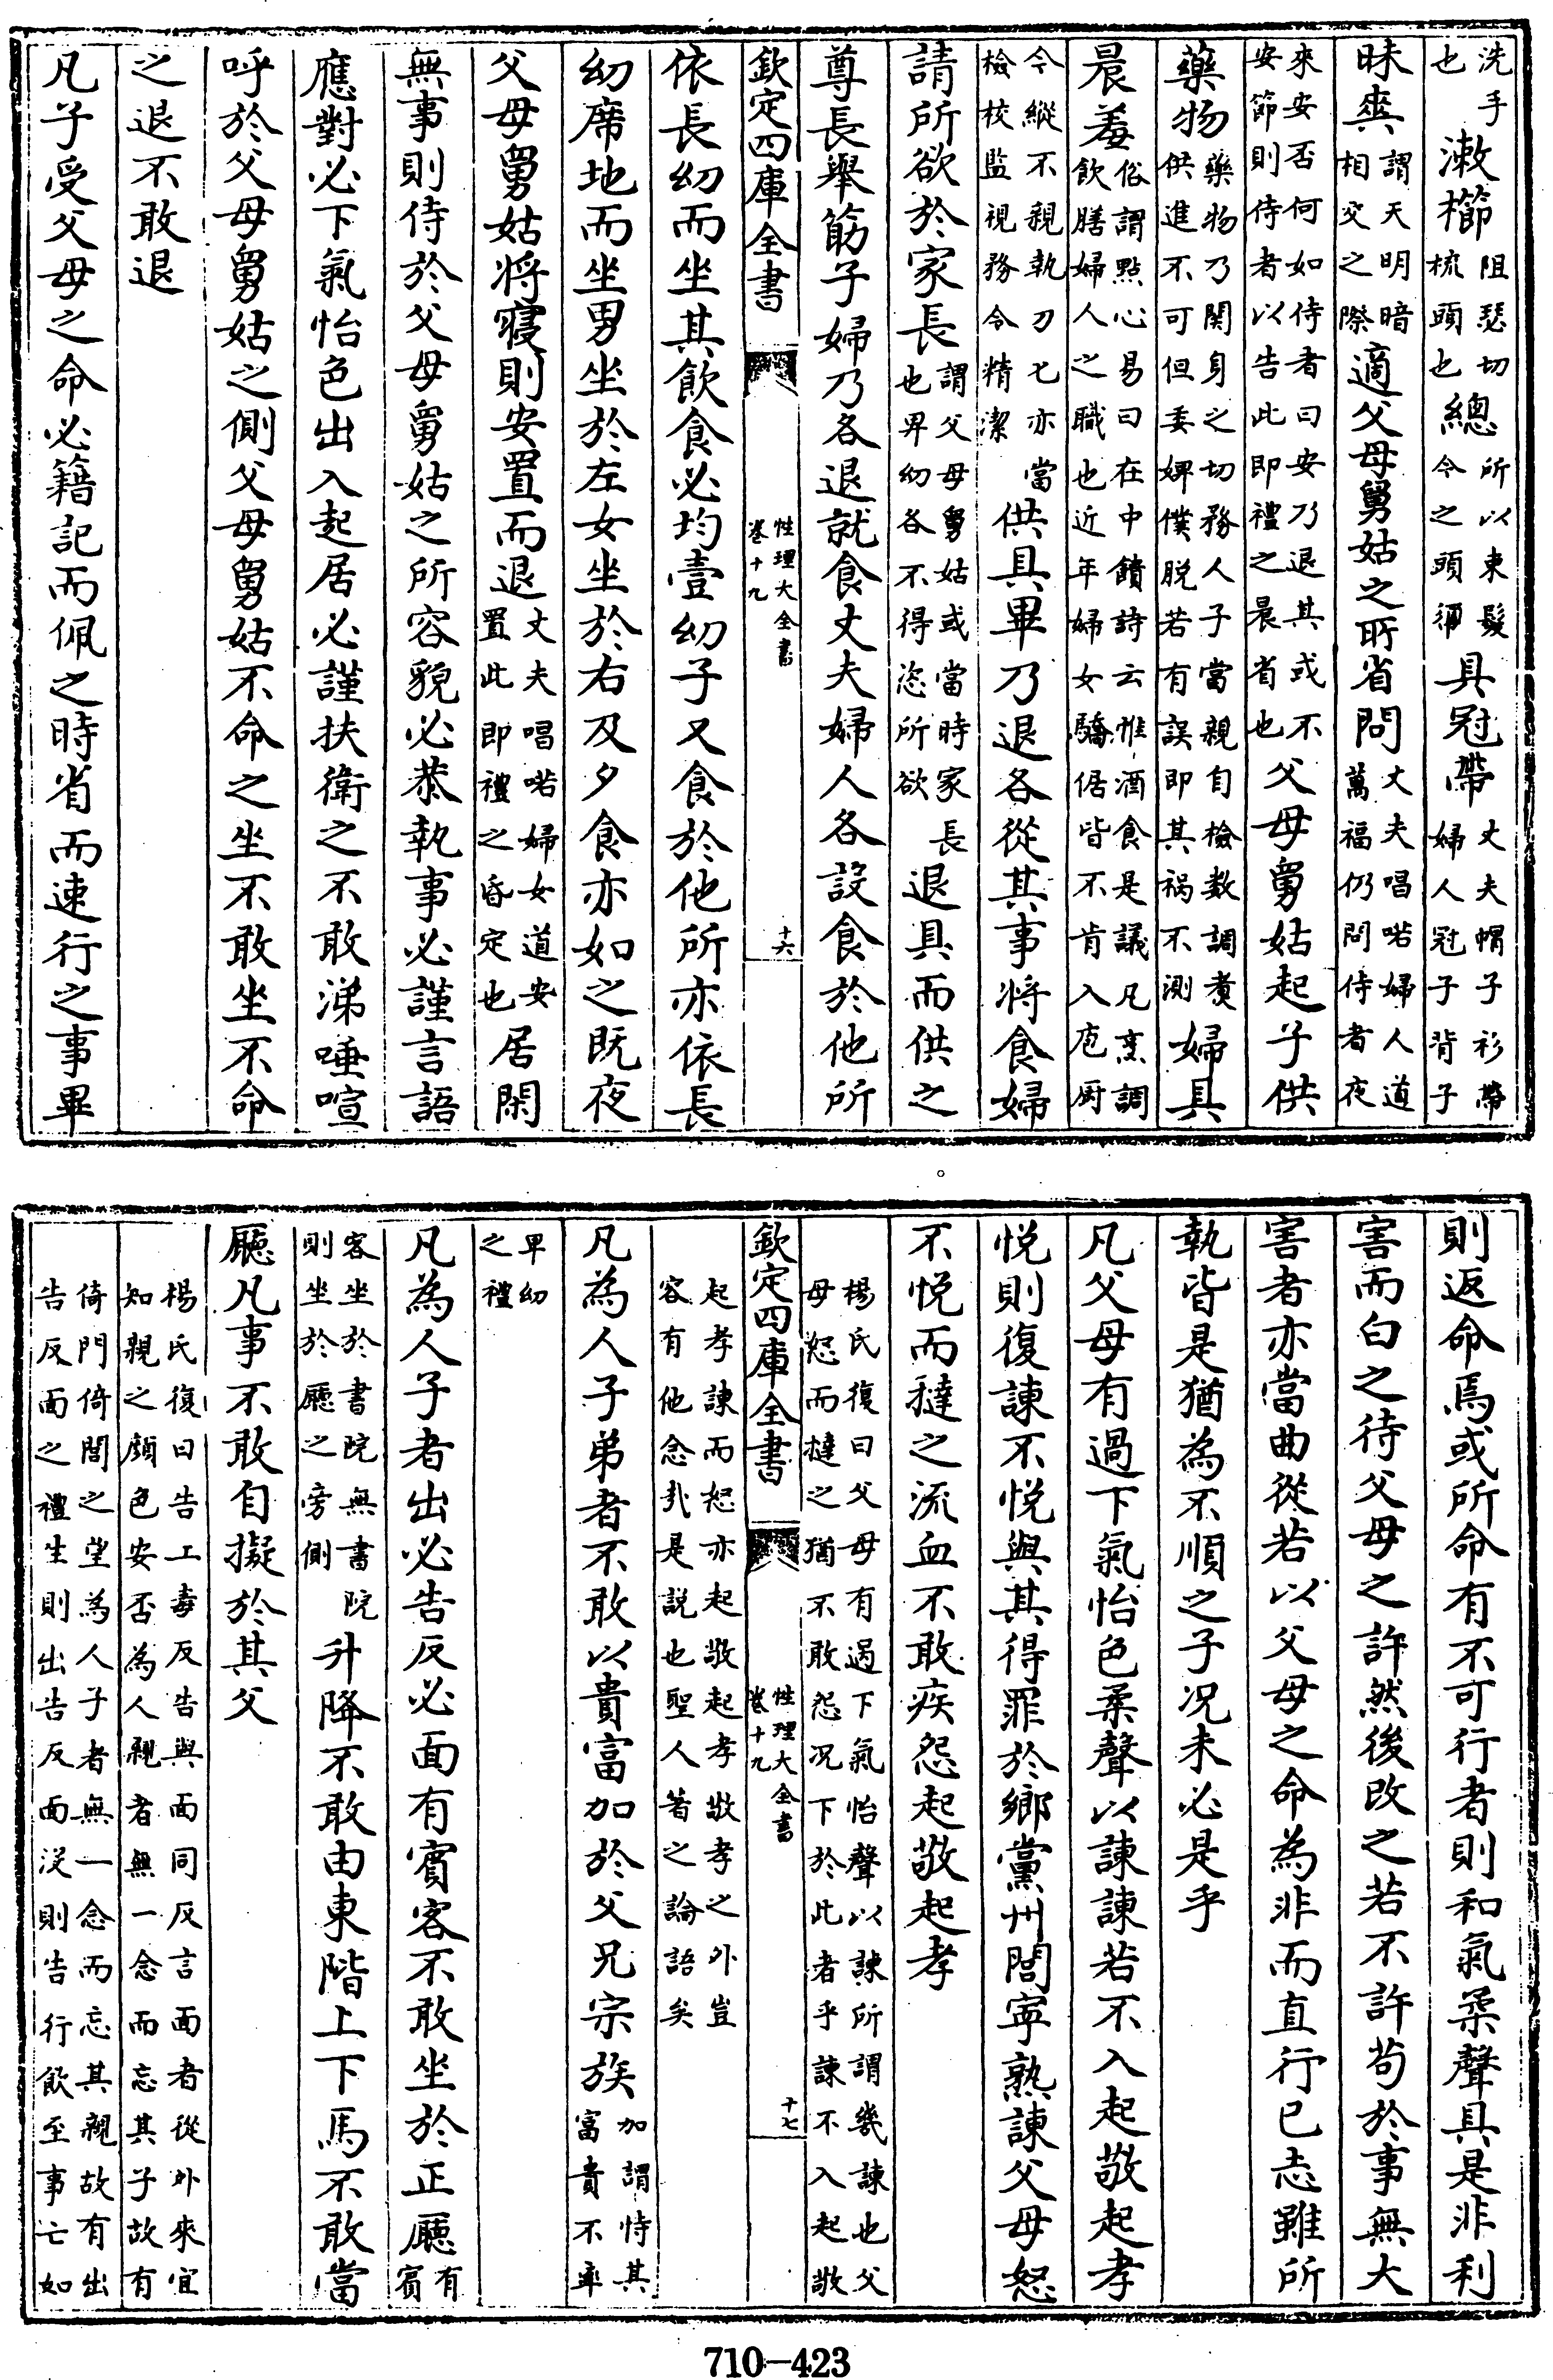 洗手也漱櫛阻瑟切梳頭也總所以束髮今之頭𢄼具冠帶丈夫帽子衫帶婦人冠子背子
昧爽謂天明暗相交之際適父母舅姑之所省問丈夫唱喏婦人道萬福仍問侍者夜
來安否何如侍者曰安乃退其或不安節則侍者以告此即禮之晨省也父母舅姑起子供
藥物藥物乃關身之切務人子當親自檢數調煑供進不可但委婢僕脱若有誤即其禍不測婦具
晨羞俗謂點心易曰在中饋詩云惟酒食是議凡烹調飲膳婦人之職也近年婦女驕倨皆不肯入庖厨
今縱不親執刀匕亦當檢校監視務令精潔供具畢乃退各從其事將食婦
請所欲於家長謂父母舅姑或當時家長也卑幼各不得恣所欲退具而供之
尊長舉筯子婦乃各退就食丈夫婦人各設食於他所
欽定四庫全書 性理大全書卷十九 十六
依長幼而坐其飲食必均壹幼子又食於他所亦依長
幼席地而坐男坐於左女坐於右及夕食亦如之既夜
父母舅姑將寢則安置而退丈夫唱喏婦女道安置此即禮之昏定也居閑
無事則侍於父母舅姑之所容貌必恭執事必謹言語
應對必下氣怡色出入起居必謹扶衛之不敢涕唾喧
呼於父母舅姑之側父母舅姑不命之坐不敢坐不命
之退不敢退
凡子受父母之命必籍記而佩之時省而速行之事畢
則返命焉或所命有不可行者則和氣柔聲具是非利
害而白之待父母之許然後改之若不許苟於事無大
害者亦當曲從若以父母之命為非而直行已志雖所
執皆是猶為不順之子况未必是乎
凡父母有過下氣怡色柔聲以諫諫若不入起敬起孝
悦則復諫不悦與其得罪於鄉黨州閭寧熟諫父母怒
不悦而撻之流血不敢疾怨起敬起孝
楊氏復曰父母有過下氣怡聲以諫所謂幾諫也父母怒而撻之猶不敢怨况下於此者乎諫不入起敬
欽定四庫全書 性理大全書卷十九 十七
起孝諫而怒亦起敬起孝敬孝之外豈容有他念㢤是説也聖人著之論語矣
凡為人子弟者不敢以貴富加於父兄宗族加謂恃其富貴不率
卑幼之禮
凡為人子者出必告反必面有賓客不敢坐於正廳有賓
客坐於書院無書院則坐於廳之旁側升降不敢由東階上下馬不敢當
廳凡事不敢自擬於其父
楊氏復曰告工毒反告與面同反言面者從外來宜知親之顔色安否為人親者無一念而忘其子故有
倚門倚閭之望為人子者無一念而忘其親故有出告反面之禮生則出告反面没則告行飲至事亡如
710—423